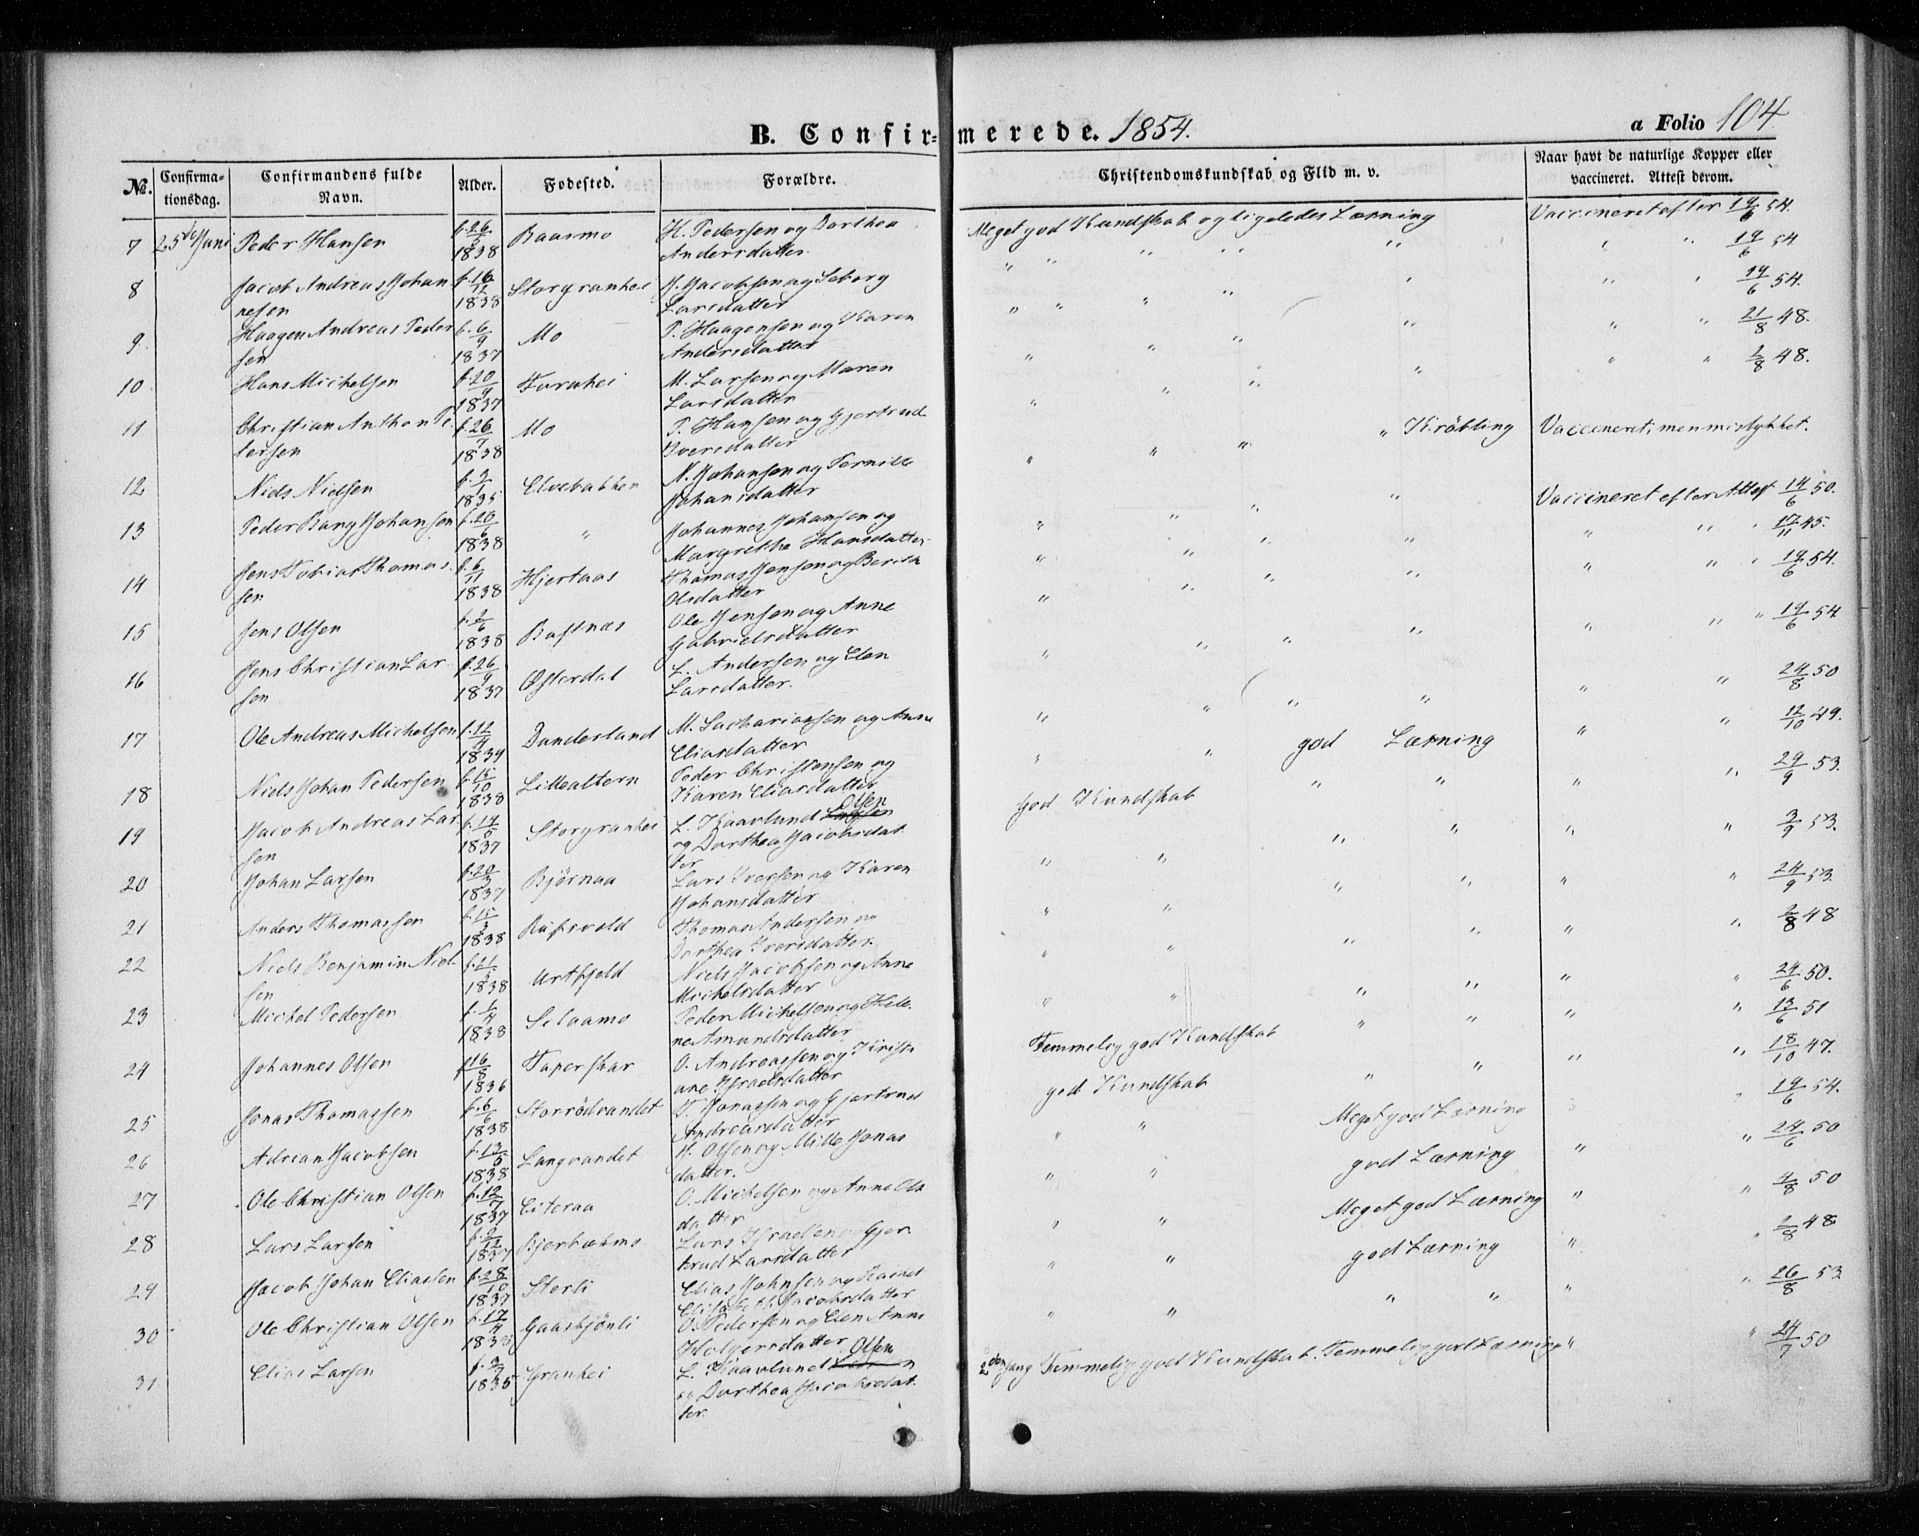 B. Confir= merede. 1854. a Folio 104
No. Confirma-tionsdag. Confirmandens fulde Navn. Alder. Fødested. Forældre. Christendomskundskab og Flid m. v. Naar havt de naturlige Kopper eller vaccineret. Attest derom.
7 25de Juni Peder Hansen f. 26/ 1838 Baasmo H. Pedersen og Dorthea Andersdatter. Meget god Kundskab og ligeledes Læsning Vaccineret efter 19/6 54.
8 Jacob Andreas Johannesen f. 16/12 1838 Storgranhei J. Jacobsen og Seborg Larsdatter " " " " " " " 19/6 54
9. Haagen Andreas Pedersen f. 6/9 1837 Mo P. Haagensen og Karen Andersdatter " " " " " " 19/6 54.
10. Hans Michelsen f. 20/9 1837 Furuhei M. Larsen og Maren Larsdatter " " " " " " 21/8 48.
11 Christian Anthon Petersen f. 26/7 1838 Mo P. Hansen og Gjertrud Iversdatter " " " " " " 2/8 48.
12 Niels Nielsen 1835 Elvebakken N. Johansen og Pernille Johansdatter " " " " Kråbling Vaccineret, men mislykket.
13 Peder Bang Johansen f. 20/6 1838 " Johannes Johansen og Margrethe Hansdatter " " " " Vaccineret efter Attest 14/6 50.
14 Jens Tobias Thomassen f. 6/11 1838 Hjertaas Thomas Jensen og Beritha Olsdatter " " " " " " " 17/11 45.
15 Jens Olsen f. 2/6 1838 Bastnæs Ole Jensen og Anne Gabrielsdatter " " " " " " " 19/6 54.
16 Jens Christian Larsen f. 26/9 1837 Østerdal L. Andersen og Elen Larsdatter. " " " " " " 19/6 54
17 Ole Andreas Michelsen f. 12/4 1839 Dunderland M. Sachariassen og Anne Eliasdatter " " " " " " 24/8 50
18 Niels Johan Pedersen f. 15/10 1838 Lillealtern Peder Christensen og Karen Eliasdatter " " god Læsning " " 12/10 49.
19 Jacob Andreas Larsen 1837 Storgranhei L. Kaavlund Olsen og Dorthea Jacobsdatter God Kundskab " " " " 29/9 53.
20 Johan Larsen f. 20/3 1837 Bjørnaa Lars Iversen og Karen Johansdatter " " " " " " 3/9 53.
21 Anders Thomassen 1838 Røsvold Thomas Andersen og Dorthea Iversdatter. " " " " " " 24/9 53.
22 Niels Benjamin Nielsen 1838 Urtfjeld Niels Jacobsen og Anne Michelsdatter " " " " " " 2/8 48
23 Michel Pedersen 1838 Selaamo Peder Michelsen og Hellene Amundsdatter " " " " " " 24/6 50.
24 Johannes Olsen f. 16/8 1836 Taperskar O. Andreassen og Kristiane Israelsdatter Temmelig god Kundskab " " " " 13/6 51
25 Jonas Thomassen f. 6/6 1838 Storrødvandet T. Jonassen og Gjertrud Andreasdatter god Kundskab " " " " 18/10 47.
26 Adrian Jacobsen f. 13/5 1838 Langvandet J. Olsen og Mille Jonasdatter. " " Meget god Læsning " 19/6 54.
27 Ole Christian Olsen f. 12/7 1837 Eiteraa O. Michelsen og Anne Olsdatter. " " god Læsning " " 24/6 50
28 Lars Larsen 1837 Lars Israelsen og Gjertrud Larsdatter " " Meget god Læsning " " 4/8 50
29 Jacob Johan Eliassen f. 28/10 1837 Storli Elias Johnsen og Elisabeth Jacobsdatter " " god Læsning " " 2/8 48
30 Ole Christian Olsen f. 17/4 Gaaskjønli O. Pedersen og Elen Anne Holgersdatter " " " " " " 26/8 53
31 Elias Larsen 1835 Granhei L. Kaavlund Olsen og Dorthea Jacobsdatter. 2den Gang Temmelig god Kundskab. Temmelig god Læsning " " 24/7 50